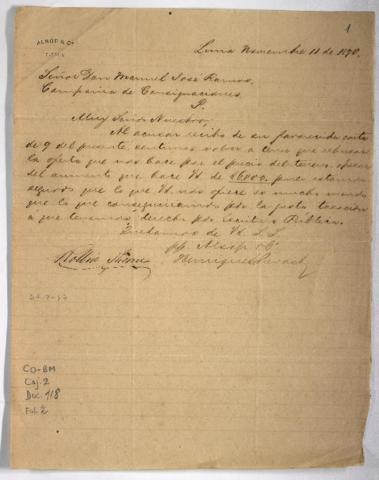 1
ALSOP & Co
LIMA
Lima Noviembre 11 de 1890.
Señor Don Manuel José Ramos,
Compañia de Consignaciones.
P.
Muy Señor Nuestro,
Al acusar recibo de su favorecida carta
de 9 del presente, sentimos volver a tener que rehusar
la oferta que nos hace por el precio del terreno, apesar
del aumento que hace Vd de 6000 pues estamos
seguros que lo que Vd nos ofrece es mucho menos
que lo que conseguiriamos por la justa tasacion
á que tenemos derecho por Escritura Pública.
Quedamos de Vd. S. S.
pp. Alsop & Co
CO-BM
Caj. 2
Doc. 118
Fol. 2